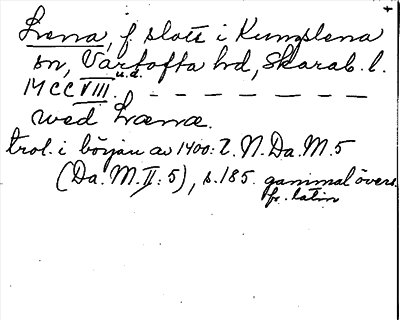 Læna, f. slott i Kungslena
sn, Vartofta hd, Skarab. l.
MCCVIII u.d. – – – – – – –
wed Lænæ.
trol. i början av 1400: t. N. Da. M. 5
(Da. M. II: 5), s. 185. gammal övers.
fr. latin